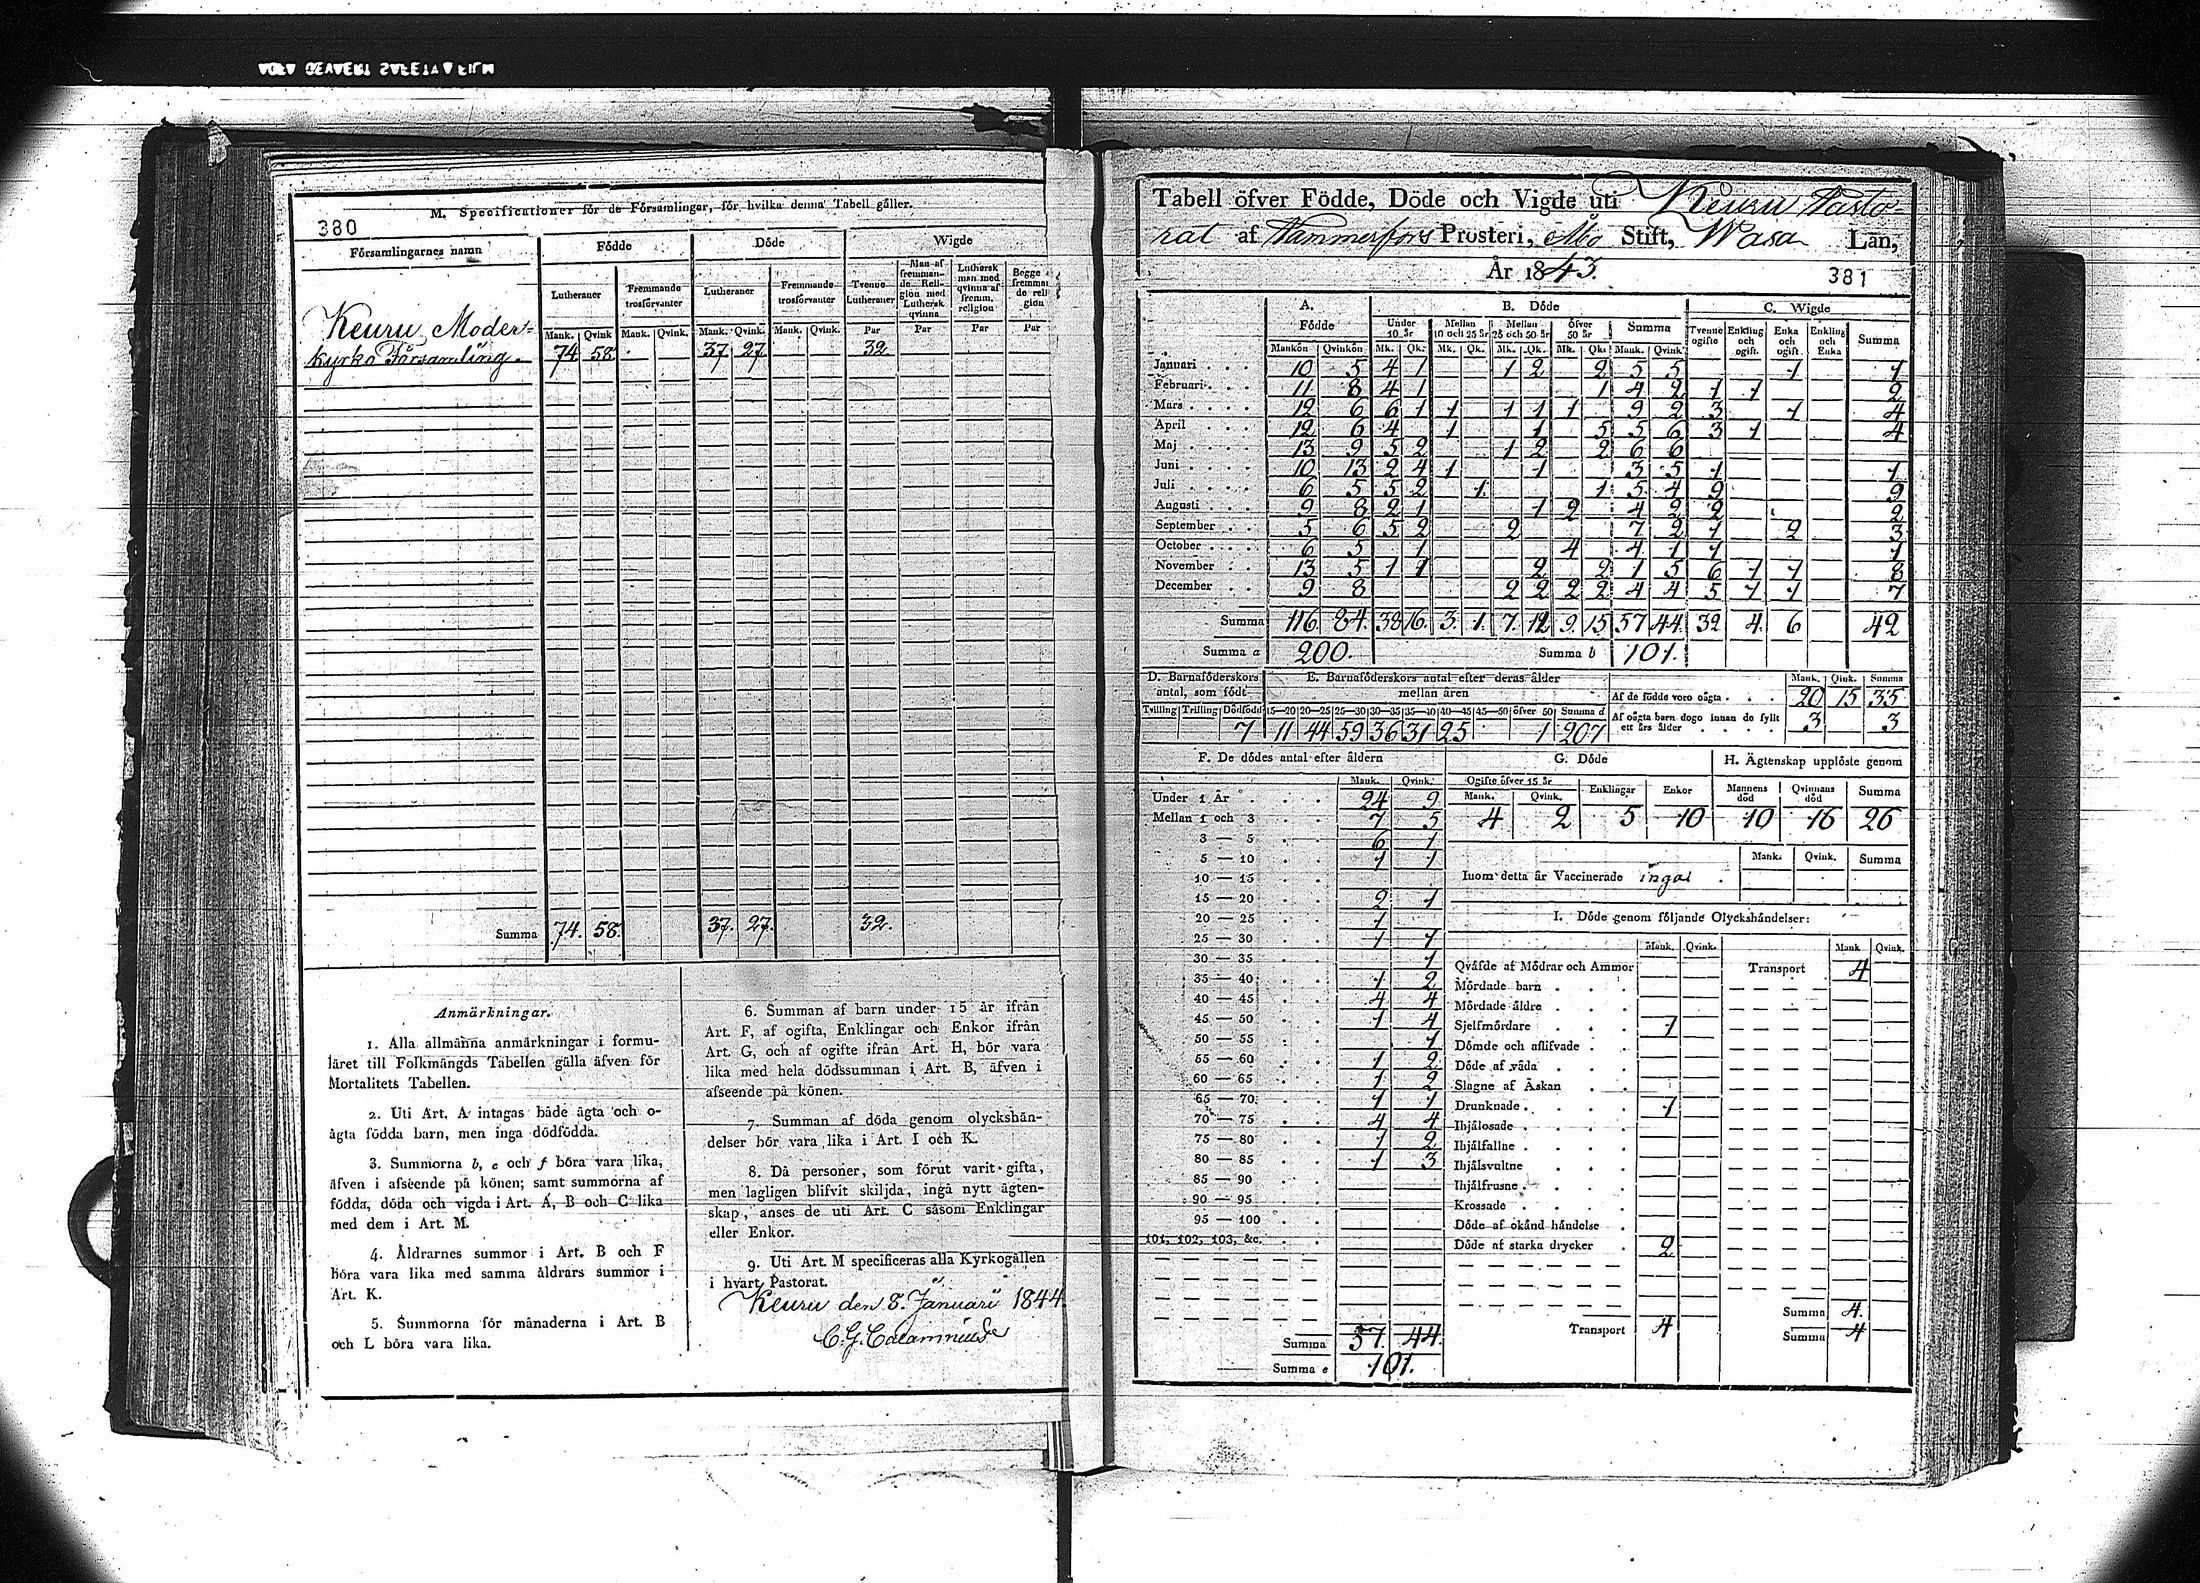 380
M. Specificationer för de Församlingar, för hvilka denna Tabell gäller.
Församlingarnes namn | Födde | Döde | Wigde
Lutheraner | Fremmande trosförvanter | Lutheraner | Fremmande trosförvanter | Tvenne Lutheraner | Man af fremmande Religion med Luthersk qvinna | Luthersk man med qvinna af fremm. religion | Begge fremmande religion
Mank. | Qvink | Mank. | Qvink. | Mank. | Qvink. | Mank. | Qvink. | Par | Par | Par | Par
Keuru Moder-
kyrko Församling. 74 58 37 27 32
Summa 74. 58. 37. 27. 32.
Anmärkningar.
1. Alla allmänna anmärkningar i formu-
läret till Folkmängds Tabellen gälla äfven för
Mortalitets Tabellen.
2. Uti Art. A intagas både ägta och o-
ägta födda barn, men inga dödfödda.
3. Summorna b, e och f böra vara lika,
äfven i afseende på könen; samt summorna af
födda, döda och vigda i Art. A, B och C lika
med dem i Art. M.
4. Åldrarnes summor i Art. B och F
böra vara lika med samma åldrars summor i
Art. K.
5. Summorna för månaderna i Art. B
och L böra vara lika.
6. Summan af barn under 15 år ifrån
Art. F, af ogifta, Enklingar och Enkor ifrån
Art. G, och af ogifte ifrån Art. H, bör vara
lika med hela dödssumman i Art. B, äfven i
afseende på könen.
7. Summan af döda genom olyckshän-
delser bör vara lika i Art. I och K.
8. Då personer, som förut varit gifta,
men lagligen blifvit skiljda, ingå nytt ägten-
skap, anses de uti Art. C såsom Enklingar
eller Enkor.
9. Uti Art. M specificeras alla Kyrkogällen
i hvart Pastorat.
Keuru den 8. Januari 1844.
C. G. Calamnius
Tabell öfver Födde, Döde och Vigde uti Keuru Pasto-
rat af Tammerfors Prosteri, Åbo Stift, Wasa Län,
År 1843.
381
A. Födde | B. Döde | C. Wigde
Under 10 år | Mellan 10 och 25 år | Mellan 25 och 50 år | Öfver 50 år | Summa | Tvenne ogifte | Enkling och ogift. | Enka och ogift. | Enkling och Enka | Summa
Mankön | Qvinkön | Mk. | Qk. | Mk. | Qk. | Mk. | Qk. | Mk. | Qk. | Mank. | Qvink.
Januari 10 5 4 1 1 2 2 5 5 1 1
Februari 11 8 4 1 1 4 2 1 1 2
Mars 12 6 6 1 1 1 1 1 9 2 3 1 4
April 12 6 4 1 1 5 5 6 3 1 4
Maj 13 9 5 2 1 2 2 6 6
Juni 10 13 2 4 1 1 3 5 1 1
Juli 6 5 5 2 1. 1 5 4 9 9
Augusti 9 8 2 1 1 2 4 2 2 2
September 5 6 5 2 2 7 2 1 2 3
October 6 5 1 4 4 1 1 1
November 13 5 1 1 2 2 1 5 6 1 1 8
December 9 8 2 2 2 2 4 4 5 1 1 7
Summa 116 84. 38 16. 3. 1. 7. 12 9. 15 57 44. 32 4. 6 42
Summa a 200. Summa b 101.
D. Barnaföderskors antal, som födt
Tvilling | Trilling | Dödfödd
7
E. Barnaföderskors antal efter deras ålder
mellan åren
15—20 | 20—25 | 25—30 | 30—35 | 35—40 | 40—45 | 45—50 | öfver 50 | Summa d
11 44 59 36 31 25 1 207
Mank. | Qink. | Summa
Af de födde voro oägta 20 15 35
Af oägta barn dogo innan de fyllt
ett års ålder 3 3
F. De dödes antal efter åldern
Mank. | Qvink.
Under 1 År 24 9
Mellan 1 och 3 7 5
3 — 5 6 1
5 — 10 1 1
10 — 15
15 — 20 2 1
20 — 25 1
25 — 30 1 1
30 — 35 1
35 — 40 1 2
40 — 45 4 4
45 — 50 1 4
50 — 55 1
55 — 60 1 2
60 — 65 1 2
65 — 70 1 1
70 — 75 4 4
75 — 80 1 2
80 — 85 1 3
85 — 90
90 — 95
95 — 100
101, 102, 103, &c.
Summa 57. 44.
Summa e 101.
G. Döde
Ogifte öfver 15 år | Enklingar | Enkor
Mank. | Qvink.
4 2 5 10
H. Ägtenskap upplöste genom
Mannens död | Qvinnans död | Summa
10 16 26
Mank. | Qvink. | Summa
Inom detta år Vaccinerade inga
I. Döde genom följande Olyckshändelser:
Mank. | Qvink. | Mank | Qvink.
Qväfde af Mödrar och Ammor
Mördade barn
Mördade äldre
Sjelfmördare 1
Dömde och aflifvade
Döde af våda
Slagne af Åskan
Drunknade 1
Ihjälosade
Ihjälfallne
Ihjälsvultne
Ihjälfrusne
Krossade
Döde af okänd händelse
Döde af starka drycker 2
Transport 4
Transport 4
Summa 4.
Summa 4